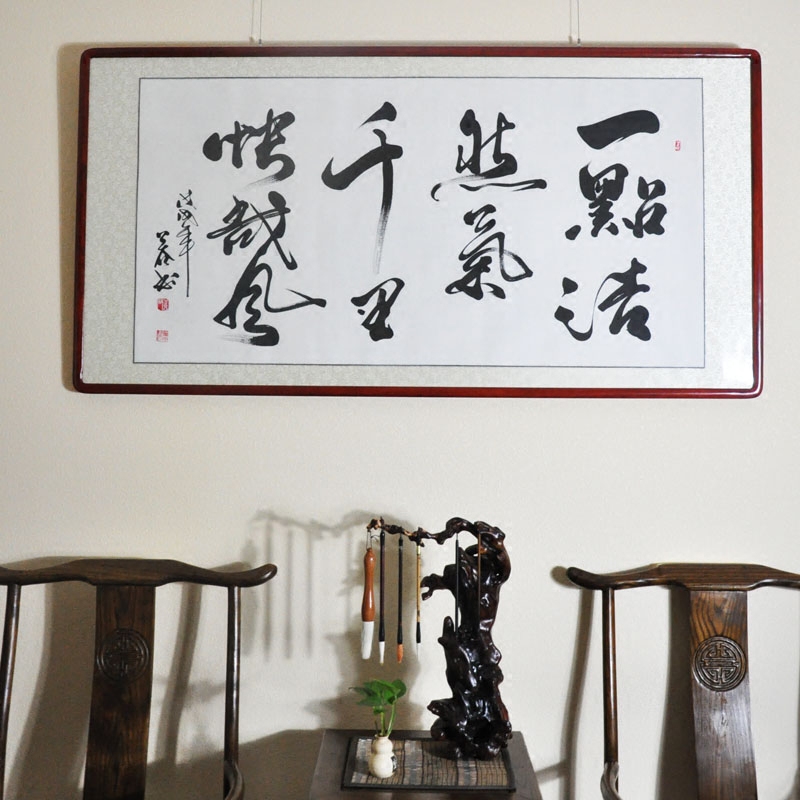 一點浩
然氣
千里
快哉风
戊戌年